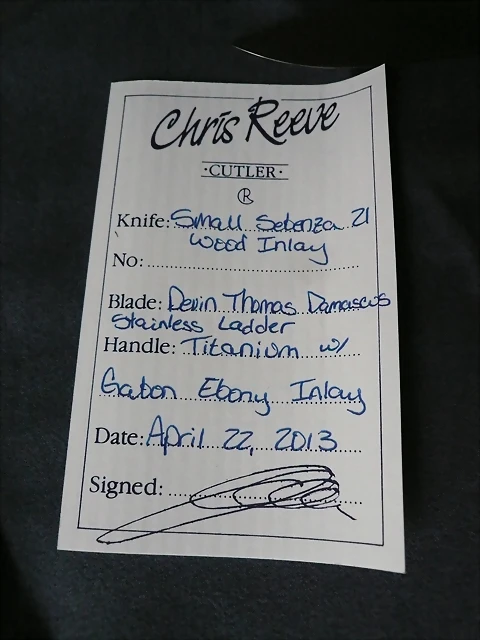 Chris Reeve
·CUTLER·
®
Knife: Small Sebenza 21
Wood Inlay
No:
Blade: Devin Thomas Damascus
Stainless Ladder
Handle: Titanium w/
Gabon Ebony Inlay
Date: April 22, 2013
Signed: